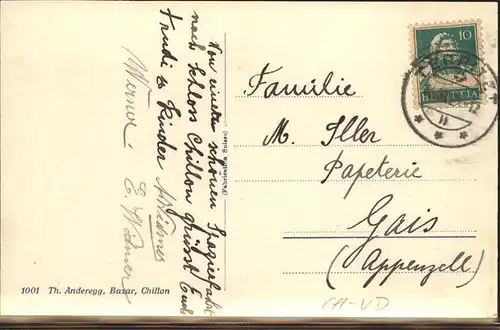 Von einem schönen Spazierfahrt
nach Schloss Chillon grüsst Euch
Trudi & Kinder
Werner.
E. Widmer
(Fabrication Suisse)
1001 Th. Anderegg, Bazar, Chillon
10
HELVETIA
Familie
M. Iller
Papeterie
Gais
(Appenzell)
CH-VD